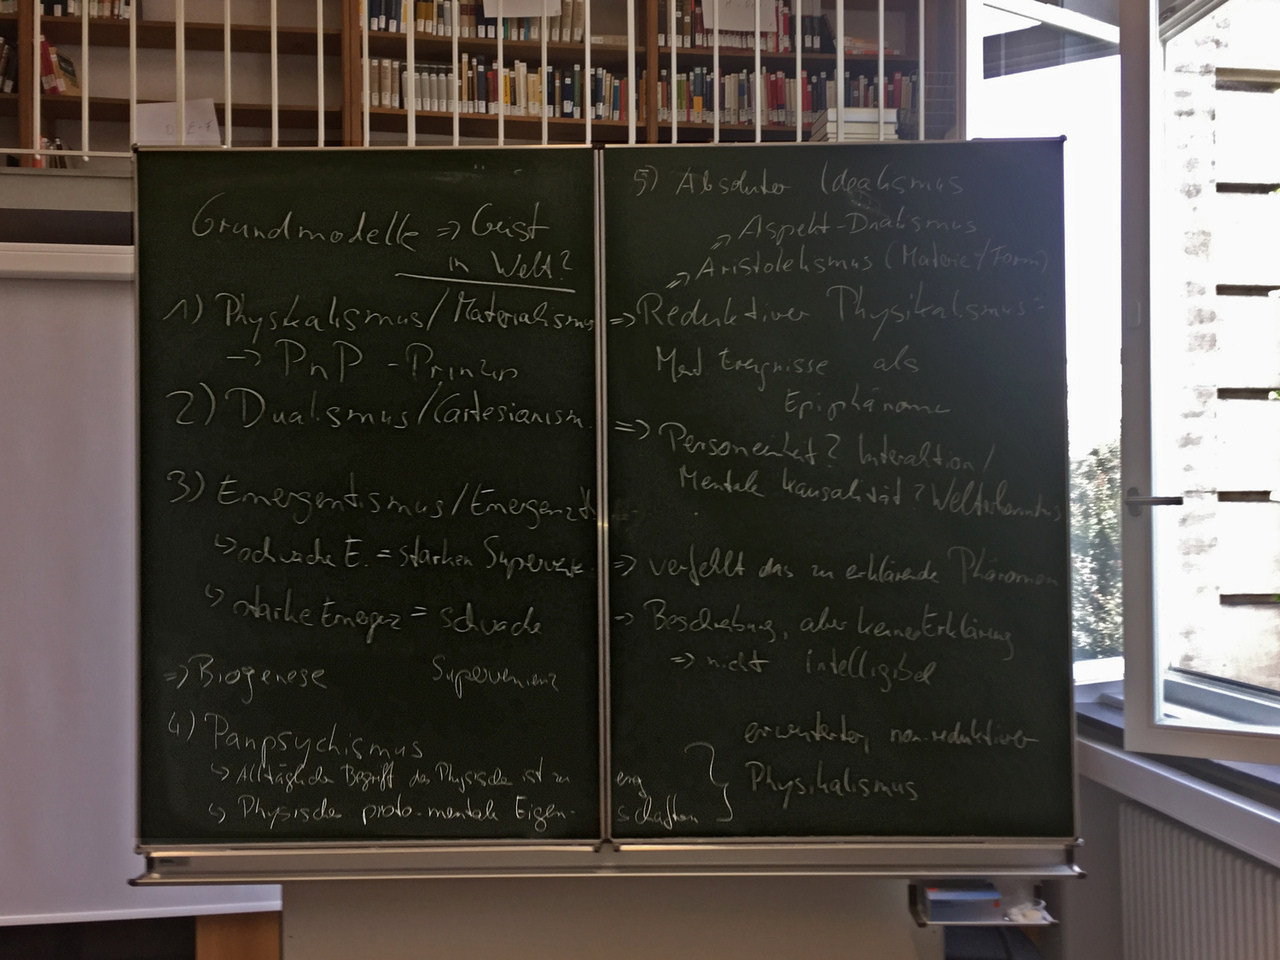 Grundmodelle => Geist
in Welt?
1) Physikalismus/Materialismus
-> PnP - Prinzip
2) Dualismus/Cartesianism.
3) Emergentismus/Emergenzth
↳ schwache E. = starken Supervenz.
↳ starke Emergenz = schwache
Supervenienz
=> Biogenese
4) Panpsychismus
↳ Alltäglicher Begriff des Physische ist zu eng
↳ Physische proto-mentale Eigen- schaften
5) Absoluter Idealismus
=> Aspekt-Dualismus
=> Aristotelismus (Materie/Form)
=> Reduktiver Physikalismus:
Ment. Ereignisse als
Epiphänome
=> Personeinheit? Interaktion/
Mentale Kausalität? Welterkenntnis
=> verfehlt das zu erklärende Phänomen
=> Beschreibung, aber keine Erklärung
=> nicht intelligibel
} erweiterter, non-reduktiver
Physikalismus